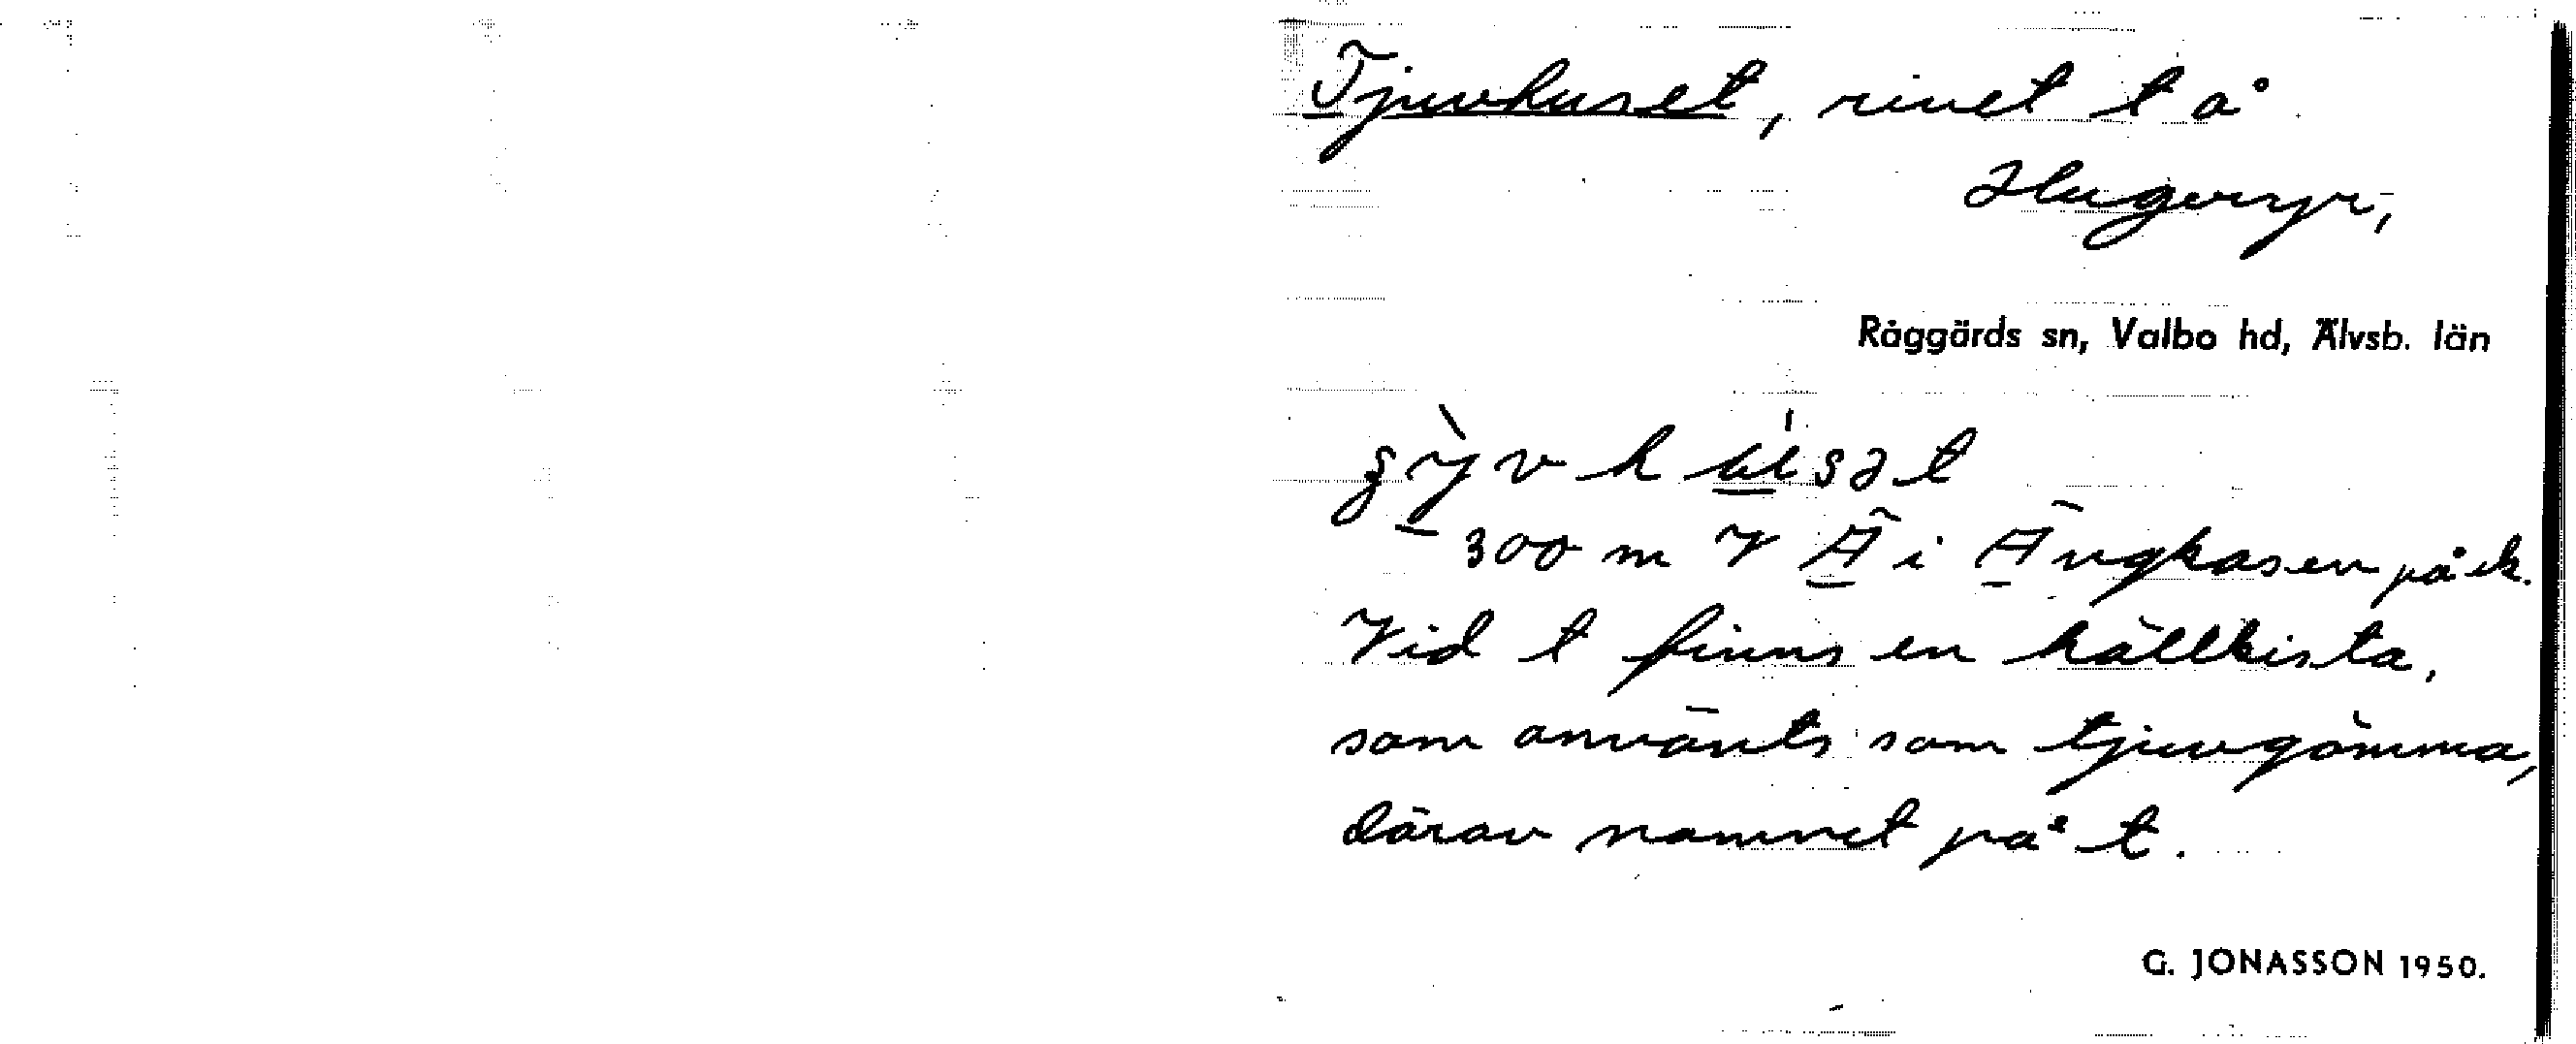 Tjuvhuset, rivet t å
Hugeryr,
Råggärds sn, Valbo hd, Älvsb. län
300 m V Ä i Ängkasen på ek.
Vid t finns en källkista,
som använts som tjuvgömma,
därav namnet på t.
G. JONASSON 1950.